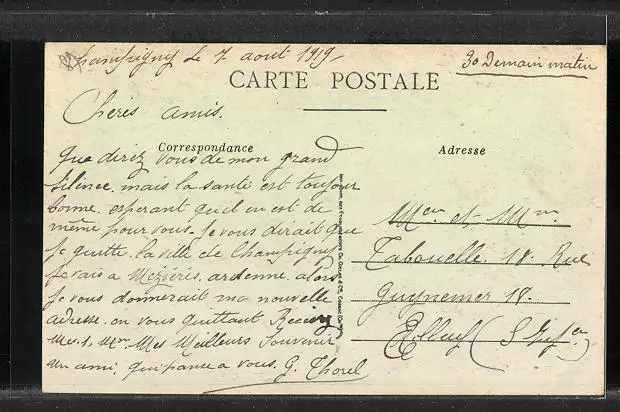 Champigny Le 7 août 1919-
30 Demain matin
CARTE POSTALE
Cheres amis.
Correspondance
Adresse
Que direz vous de mon grand
silence. mais la santé est toujour
bonne. esperant quil en est de
même pour vous. Je vous dirait que
Je quitte. la ville de Champigny
Je vais a Mezières. ardenne. alors
Je vous donnerait ma nouvelle
adresse. en vous quittant
Mes Meilleurs Souvenir
un ami, qui pense a vous. G. Thorel
Meur et Mme
Tabouelle. 18. Rue
Guynemer 18.
Elbeuf (S Infre)